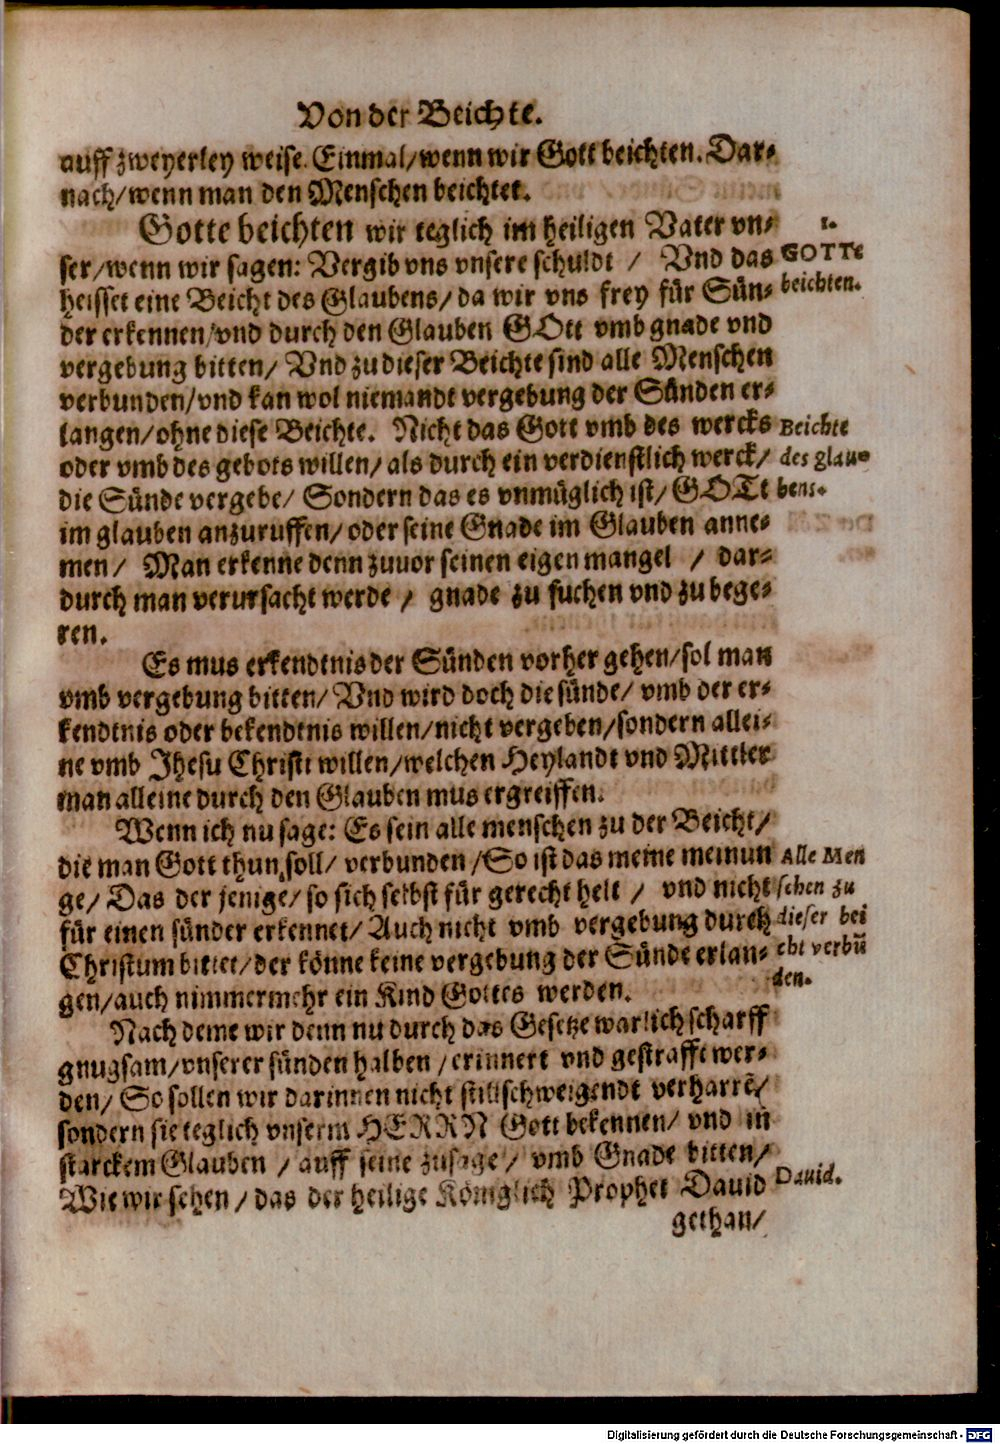 Von der Beichte.
auff zweyerley weise. Einmal/wenn wir Gott beichten. Dar-
nach/wenn man den Menschen beichtet.
Gotte beichten wir teglich im heiligen Vater vn-
ser/wenn wir sagen: Vergib vns vnsere schuldt / Vnd das
heisset eine Beicht des Glaubens/da wir vns frey für Sün-
der erkennen/vnd durch den Glauben GOtt vmb gnade vnd
vergebung bitten/ Vnd zu dieser Beichte sind alle Menschen
verbunden/vnd kan wol niemandt vergebung der Sünden er-
langen/ohne diese Beichte. Nicht das Gott vmb des wercks
oder vmb des gebots willen/als durch ein verdienstlich werck/
die Sünde vergebe/ Sondern das es vnmüglich ist/ GOTt
im glauben anzuruffen/oder seine Gnade im Glauben anne-
men/ Man erkenne denn zuuor seinen eigen mangel / dar-
durch man verursacht werde / gnade zu suchen vnd zu bege-
ren.
Es mus erkendtnis der Sünden vorher gehen/sol man
vmb vergebung bitten/ Vnd wird doch die sünde/ vmb der er-
kendtnis oder bekendtnis willen/nicht vergeben/sondern allei-
ne vmb Jhesu Christi willen/welchen Heylandt vnd Mittler
man alleine durch den Glauben mus ergreiffen.
Wenn ich nu sage: Es sein alle menschen zu der Beicht/
die man Gott thun soll/ verbunden/So ist das meine meinun
ge/ Das der jenige/so sich selbst für gerecht helt / vnd nicht
für einen sünder erkennet/ Auch nicht vmb vergebung durch
Christum bittet/der könne keine vergebung der Sünde erlan-
gen/auch nimmermehr ein Kind Gottes werden.
Nach deme wir denn nu durch das Gesetze warlich scharff
gnugsam/vnserer sünden halben /erinnert vnd gestrafft wer-
den/ So sollen wir darinnen nicht stillschweigendt verharrē/
sondern sie teglich vnserm HERRN Gott bekennen/ vnd in
starckem Glauben /auff seine zusage/ vmb Gnade bitten/
Wie wir sehen/das der heilige Königlich Prophet Dauid
gethan/
1.
GOTTe
beichten.
Beichte
des glau-
bens.
Alle Men
schen zu
dieser bei
cht verbū
den.
Dauid.
Digitalisierung gefördert durch die Deutsche Forschungsgemeinschaft - DFG